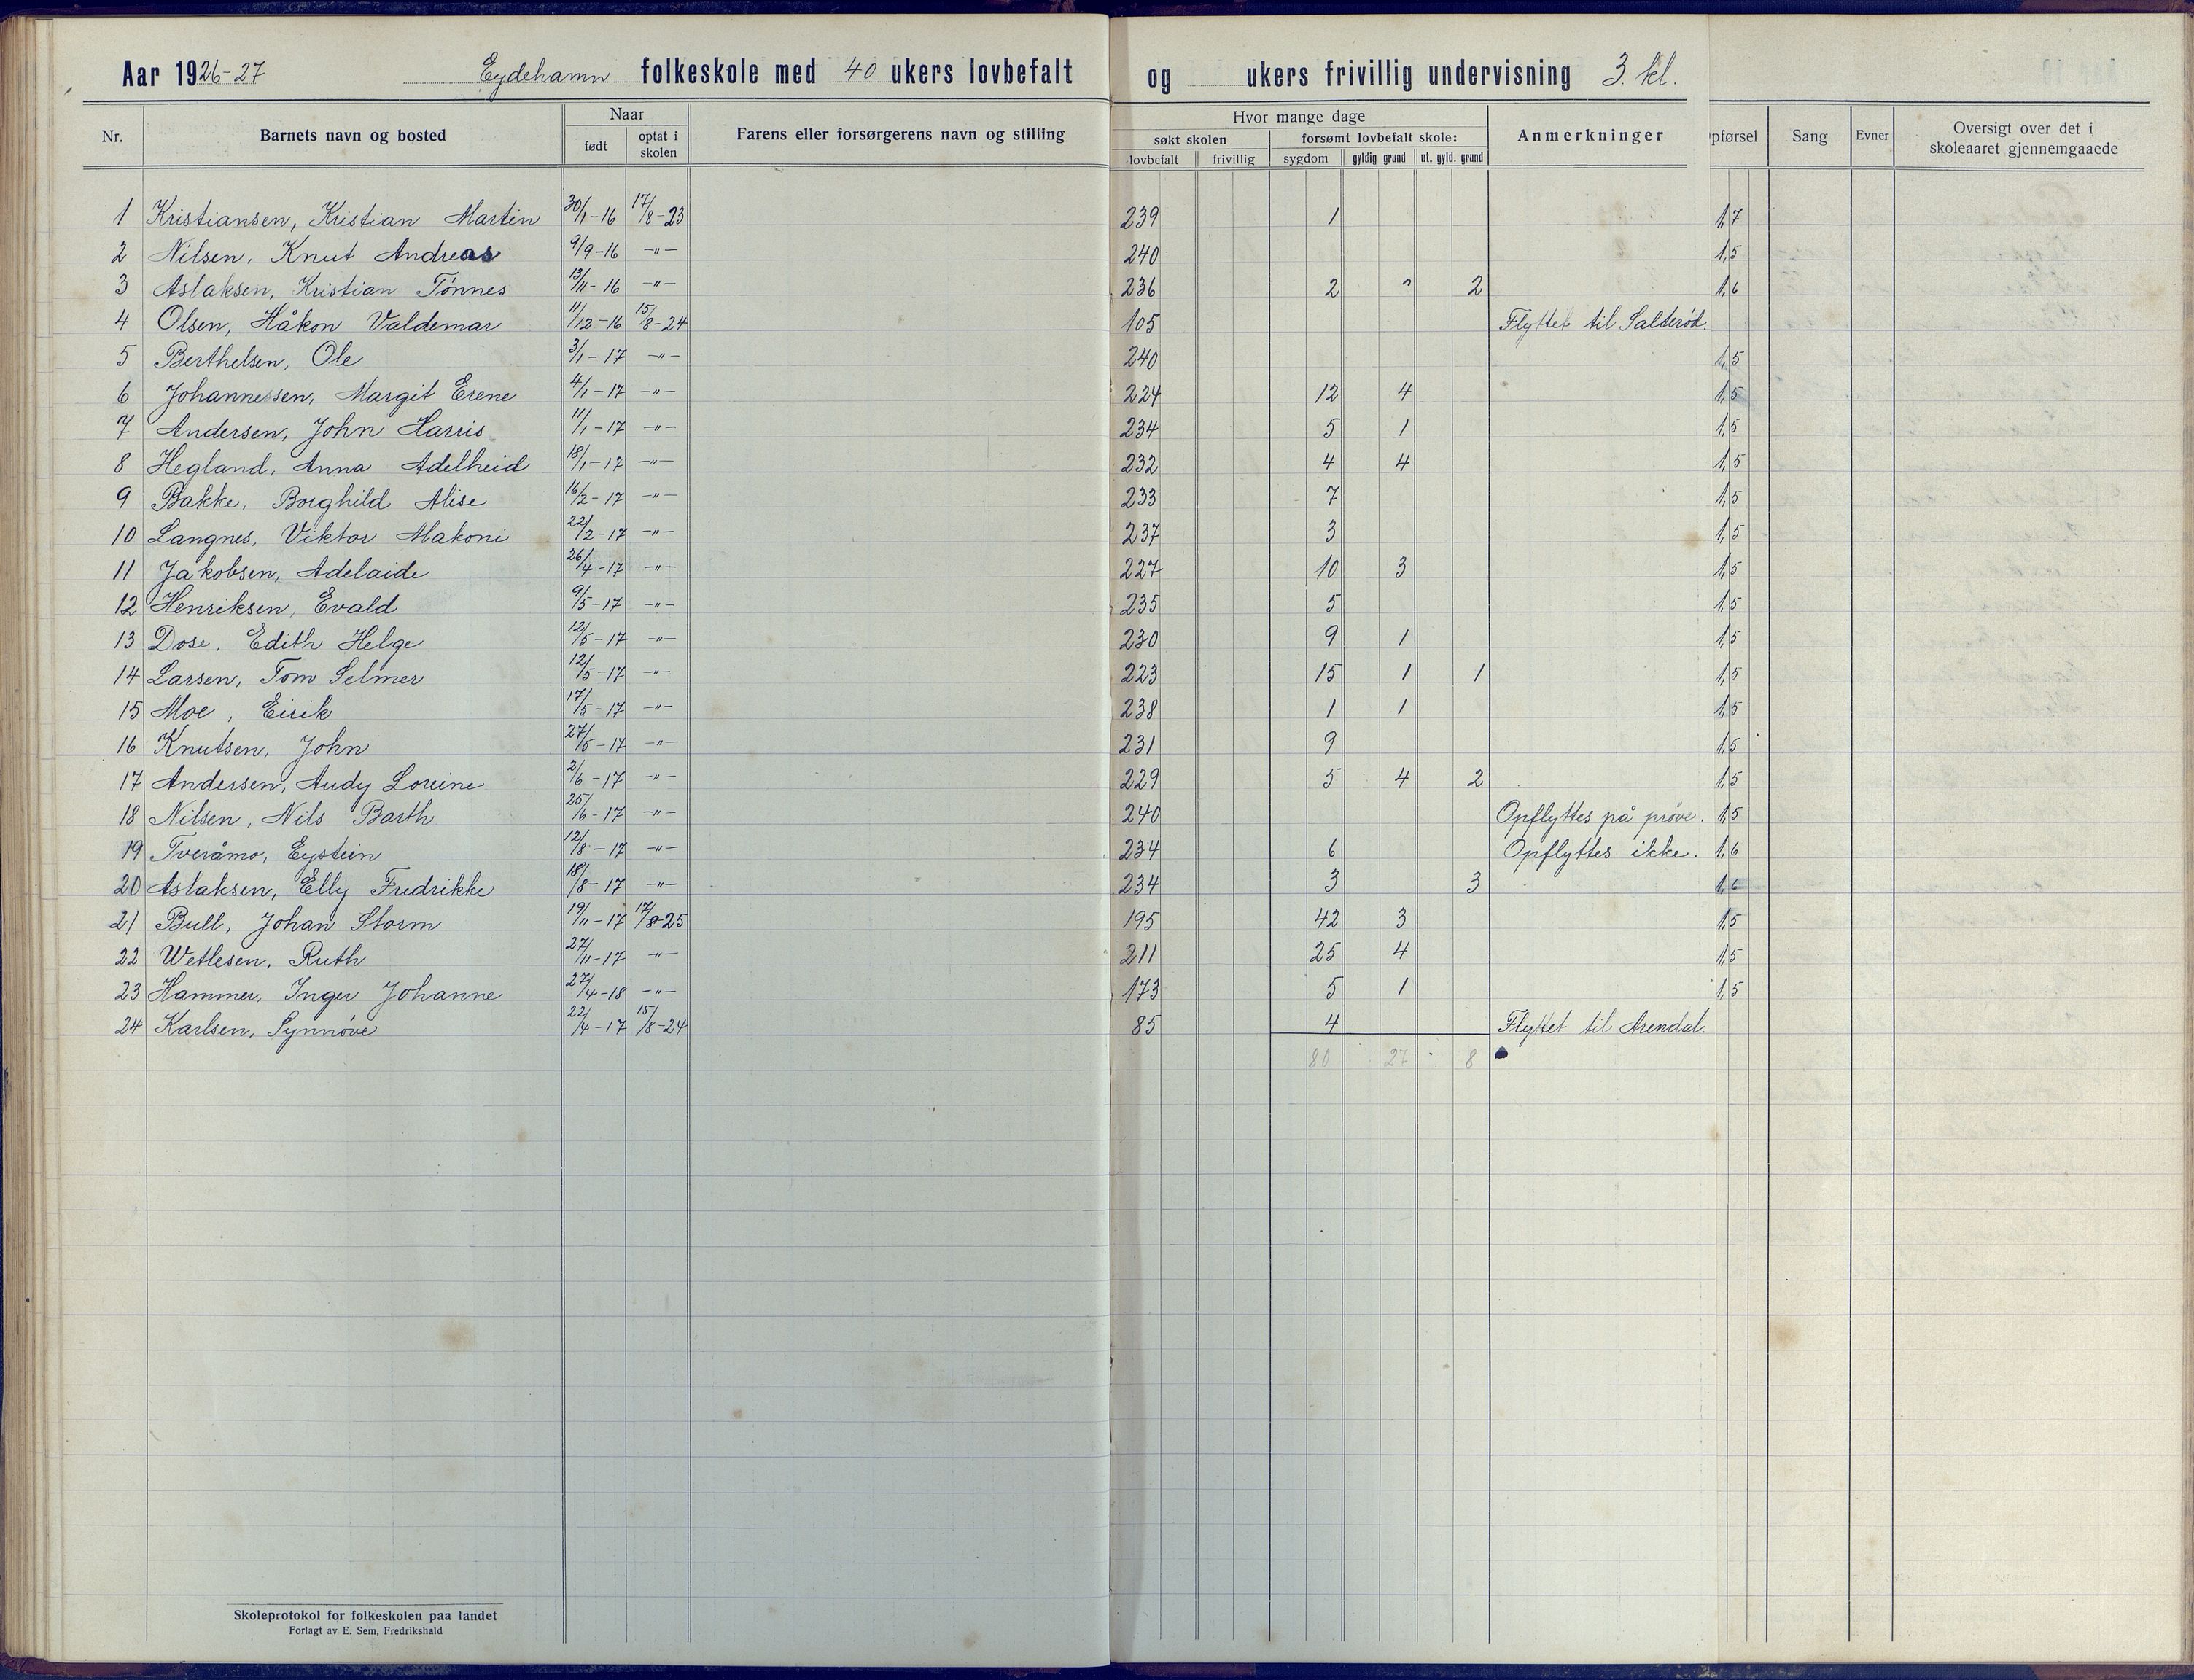 Aar 1926-27 Eydehamn folkeskole med 40 ukers lovbefalt og ukers frivillig undervisning 3. kl.
Nr. Barnets navn og bosted Naar født optat i skolen Farens eller forsørgerens navn og stilling Hvor mange dage søkt skolen lovbefalt frivillig forsømt lovbefalt skole: sygdom gyldig grund ut. gyld. grund Anmerkninger pførsel Sang Evner Oversigt over det i skoleaaret gjennemgaaede
1 Kristiansen, Kristian Martin 30/1-16 17/8-23 239 1 1,7
2 Nilsen, Knut Andreas 9/9-16 -"- 240 1,5
3 Aslaksen, Kristian Tønnes 13/11-16 -"- 236 2 " 2 1,6
4 Olsen, Håkon Valdemar 11/12-16 15/8-24 105 Flyttet til Salterød.
5 Berthelsen, Ole 3/1-17 -"- 240 1,5
6 Johannessen, Margit Erene 4/1-17 -"- 224 12 4 1,5
7 Andersen, John Harris 11/1-17 -"- 234 5 1 1,5
8 Hegland, Anna Adelheid 18/1-17 -"- 232 4 4 1,5
9 Bakke, Borghild Alise 16/2-17 -"- 233 7 1,5
10 Langnes, Viktor Makoni 22/2-17 -"- 237 3 1,5
11 Jakobsen, Adelaide 26/4-17 -"- 227 10 3 1,5
12 Henriksen, Evald 9/5-17 -"- 235 5 1,5
13 Dose, Edith Helge 12/5-17 -"- 230 9 1 1,5
14 Larsen, Tom Selmer 12/5-17 -"- 223 15 1 1 1,5
15 Moe, Eirik 17/5-17 -"- 238 1 1 1,5
16 Knutsen, John 27/5-17 -"- 231 9 1,5
17 Andersen, Audy Loreine 2/6-17 -"- 229 5 4 2 1,5
18 Nilsen, Nils Barth 25/6-17 -"- 240 Opflyttes på prøve. 1,5
19 Tveråmo, Eystein 12/8-17 -"- 234 6 Opflyttes ikke. 1,6
20 Aslaksen, Elly Fredrikke 18/8-17 -"- 234 3 3 1,6
21 Bull, Johan Storm 19/11-17 17/8-25 195 42 3 1,5
22 Wetlesen, Ruth 27/11-17 -"- 211 25 4 1,5
23 Hammer, Inger Johanne 27/4-18 -"- 173 5 1 1,5
24 Karlsen, Synnøve 22/4-17 15/8-24 85 4 Flyttet til Arendal.
80 27 8
Skoleprotokol for folkeskolen paa landet
Forlagt av E. Sem, Fredrikshald